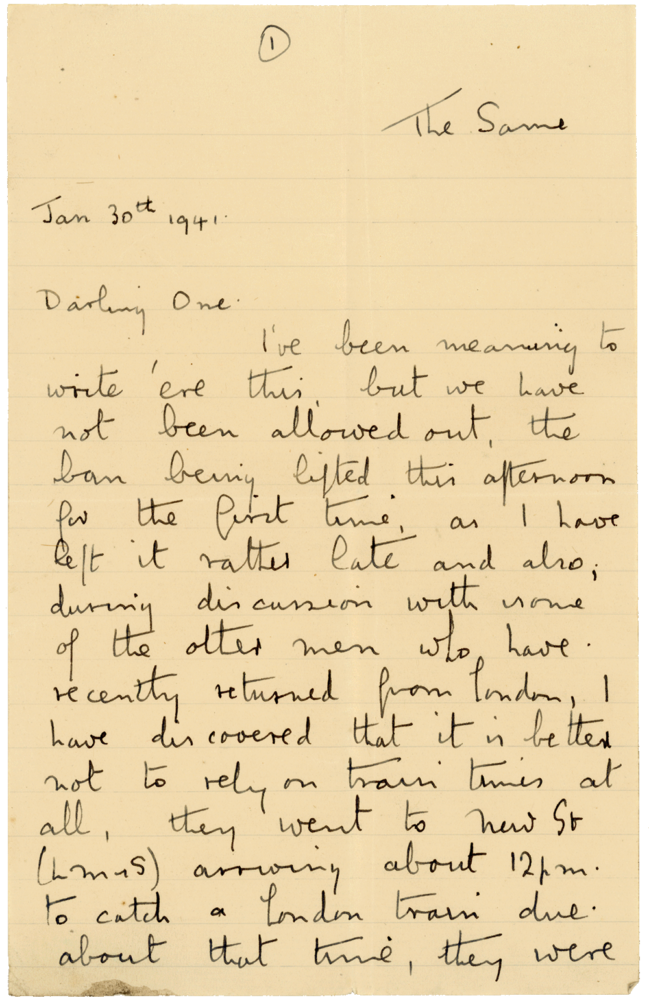 1
The Same
Jan 30th 1941.
Darling One.
I've been meaning to
write 'ere this, but we have
not been allowed out, the
ban being lifted this afternoon
for the first time, as I have
left it rather late and also,
during discussion with some
of the other men who have.
recently returned from London, I
have discovered that it is better
not to rely on train times at
all, they went to New St
(LMS) arriving about 12pm.
to catch a London train due.
about that time, they were